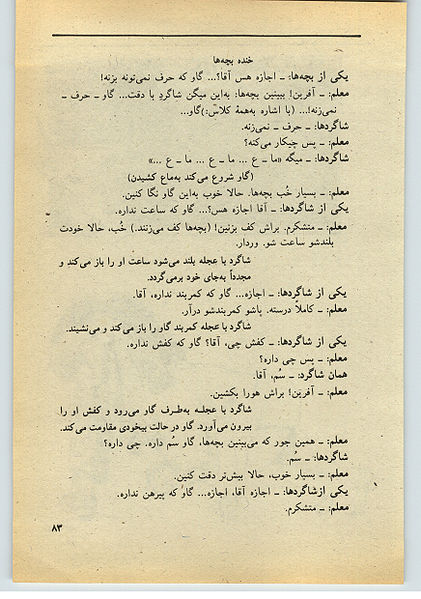 خنده بچه‌ها
یکی از بچه‌ها: ــ اجازه هس آقا؟... گاو که حرف نمی‌تونه بزنه!
معلم: ــ آفرین! ببینین بچه‌ها: به‌این میگن شاگردِ با دقت... گاو ــ حرف ــ
نمی‌زنه!... (با اشاره به‌همهٔ کلاس:)گاو...
شاگردها: ــ حرف ــ نمی‌زنه.
معلم: ــ پس چیکار می‌کنه؟
شاگردها: ــ میگه «ما ــ ع ... ما ــ ع ... ما ــ ع ...»
(گاو شروع می‌کند به‌ماع کشیدن)
معلم: ــ بسیار خُب بچه‌ها. حالا خوب به‌این گاو نگا کنین.
یکی از شاگردها: ــ آقا اجازه هس؟... گاو که ساعت نداره.
معلم: ــ متشکرم. براش کف بزنین! (بچه‌ها کف می‌زنند.) خُب، حالا خودت
بلندشو ساعت شو. وردار.
شاگرد با عجله بلند می‌شود ساعت او را باز می‌کند و
مجدداً به‌جای خود برمی‌گردد.
یکی از شاگردها: ــ اجازه... گاو که کمربند نداره، آقا.
معلم: ــ کاملاً درسته. پاشو کمربندشو درآر.
شاگرد با عجله کمربند گاو را باز می‌کند و می‌نشیند.
یکی از شاگردها: ــ کفش چی، آقا؟ گاو که کفش نداره.
معلم: ــ پس چی داره؟
همان شاگرد: ــ سُم، آقا.
معلم: ــ آفرین! براش هورا بکشین.
شاگرد با عجلــه به‌طــرف گاو می‌رود و کفش او را
بیرون می‌آورد. گاو در حالت بیخودی مقاومت می‌کند.
معلم: ــ همین جور که می‌بینین بچه‌ها، گاو سُم داره. چی داره؟
شاگردها: ــ سُم.
معلم: ــ بسیار خوب، حالا بیش‌تر دقت کنین.
یکی ازشاگردها: ــ اجازه آقا، اجازه... گاو که پیرهن نداره.
معلم: ــ متشکرم.
۸۳